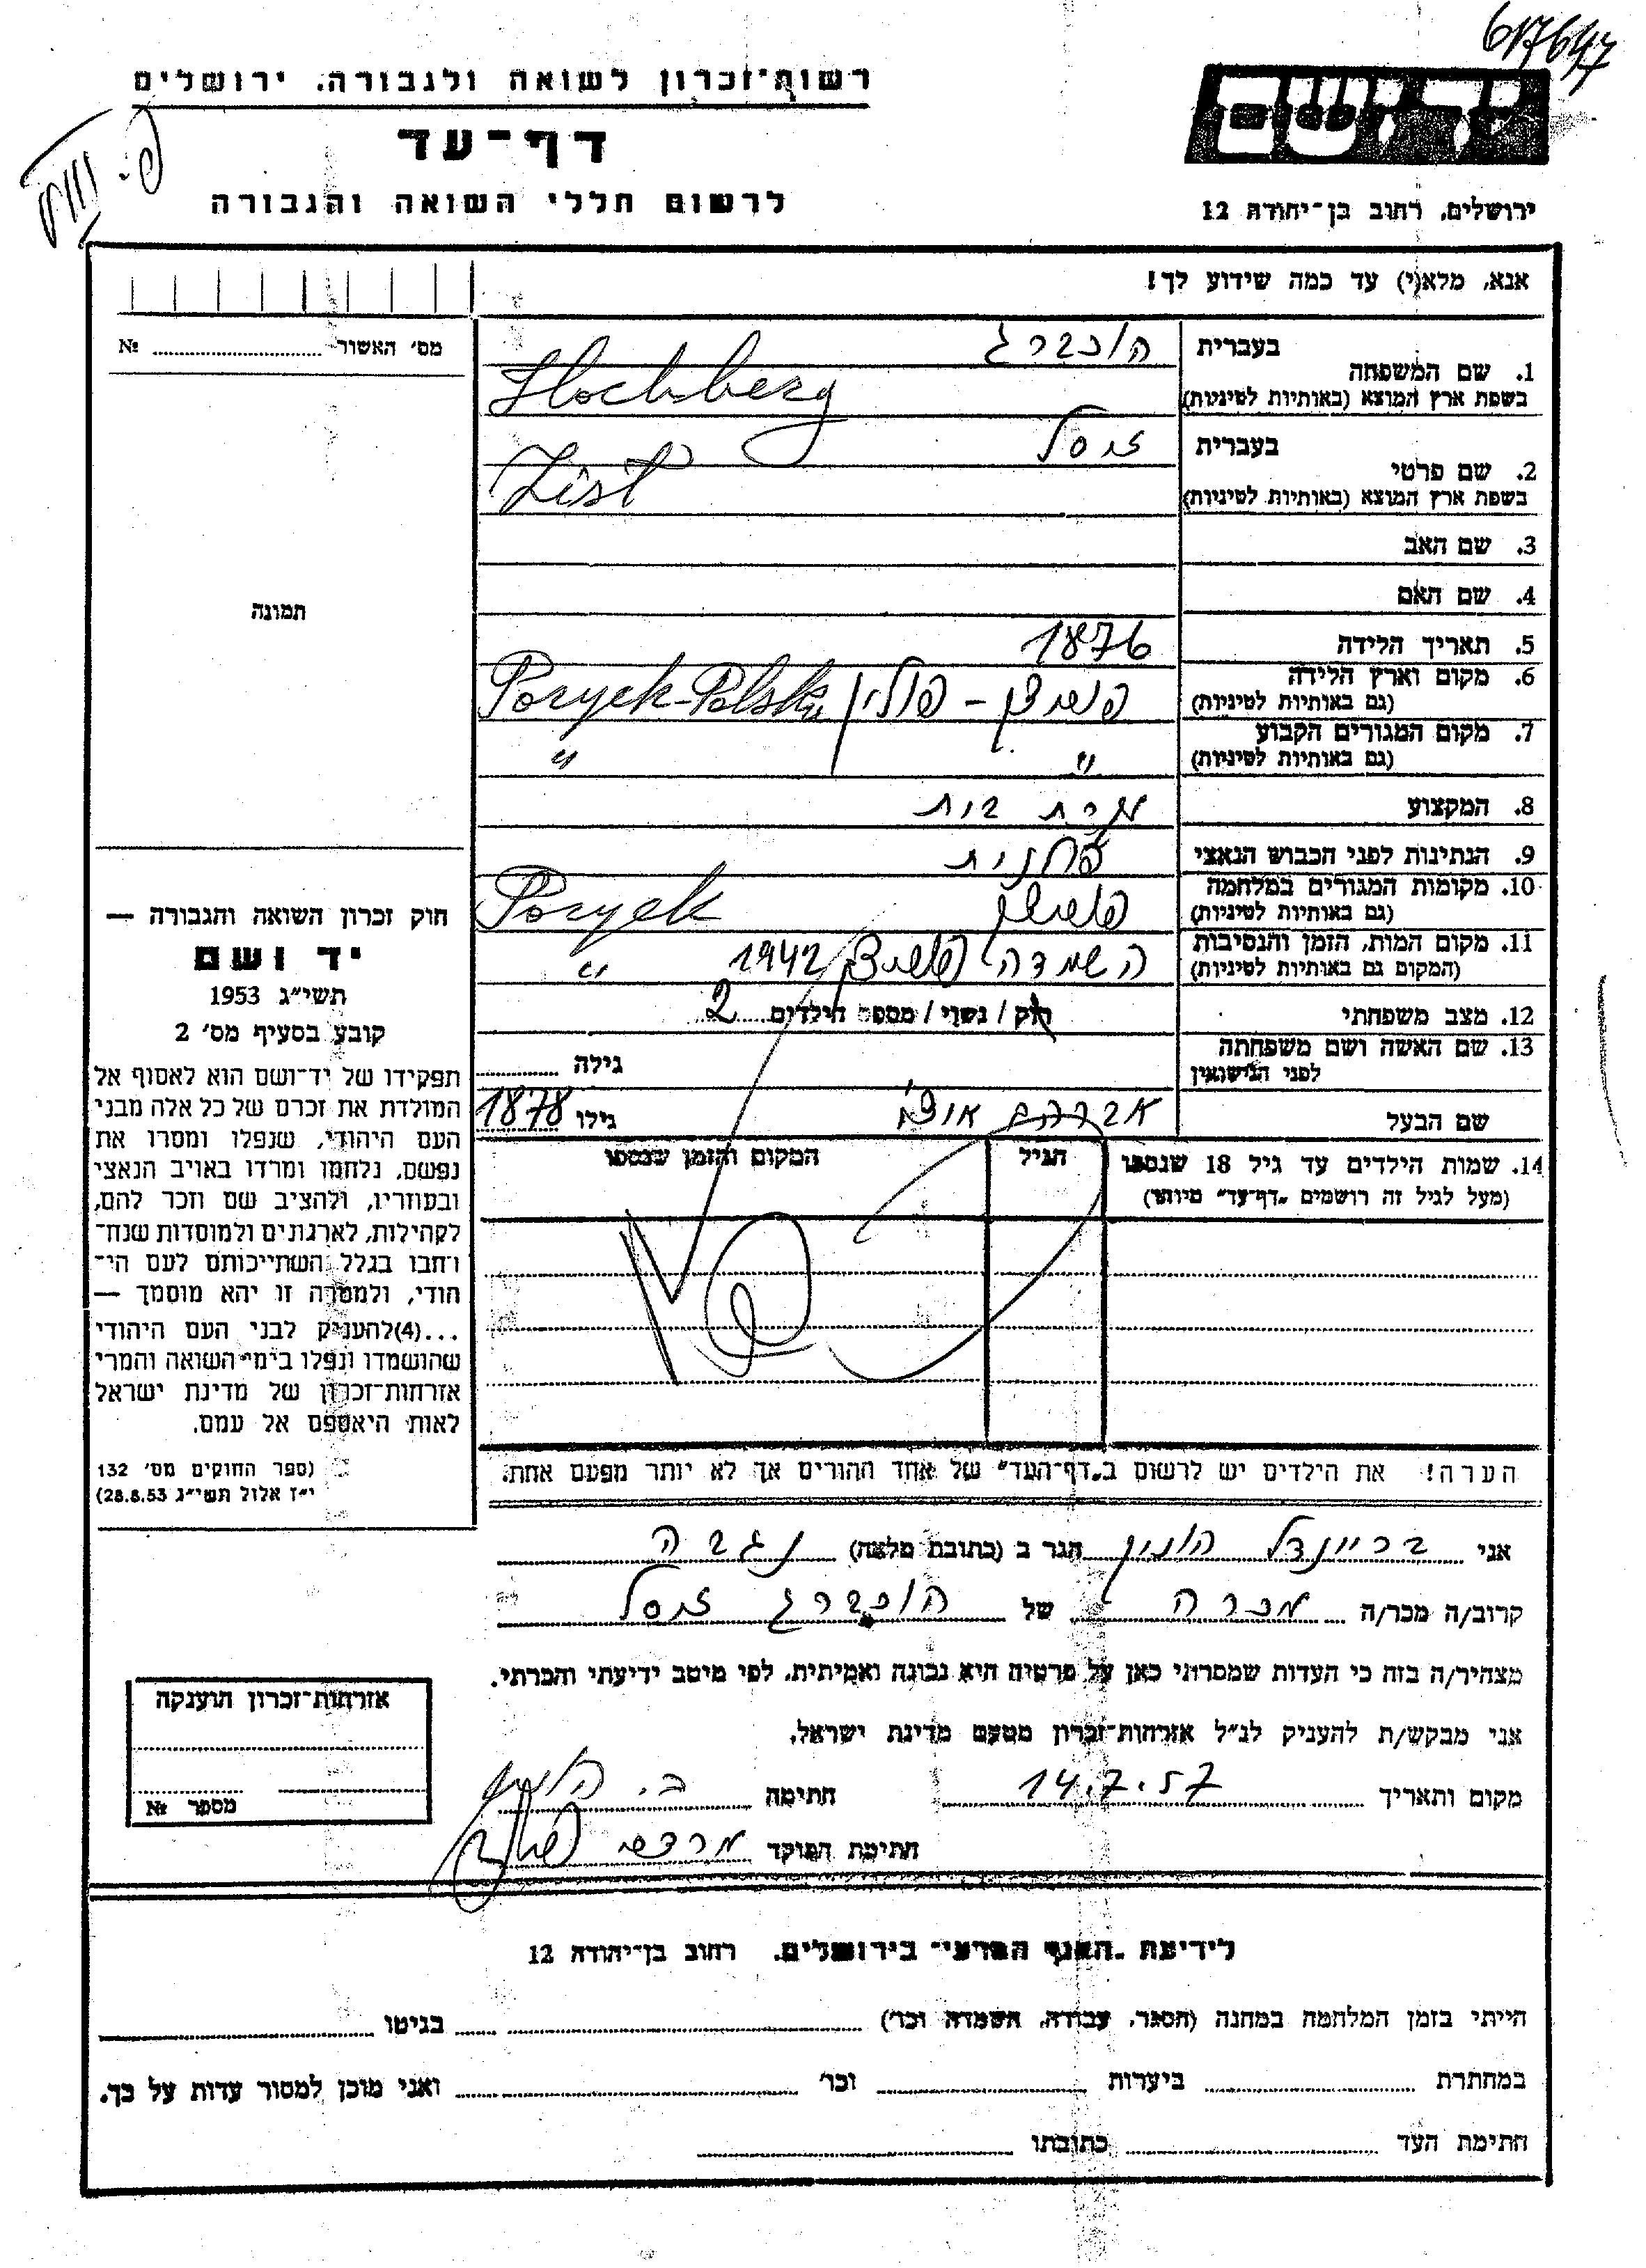 617647
רשות־זכרון לשואה ולגבורה, ירושלים
דף־עד
לרשום חללי השואה והגבורה
יד ושם
ירושלים, רחוב בן־יהודה 12
אנא, מלא(י) עד כמה שידוע לך!
מס׳ האשור № 
1. שם המשפחה בעברית הוכברג
בשפת ארץ המוצא (באותיות לטיניות) Hochberg
2. שם פרטי בעברית זיסל
בשפת ארץ המוצא (באותיות לטיניות) Zisl
3. שם האב
4. שם האם
5. תאריך הלידה 1876
6. מקום וארץ הלידה
(גם באותיות לטיניות) פוריצק - פולין Poryck-Polska
7. מקום המגורים הקבוע
(גם באותיות לטיניות) " "
8. המקצוע עקרת בית
9. הנתינות לפני הכבוש הנאצי פולנית
10. מקומות המגורים במלחמה
(גם באותיות לטיניות) פוריצק Poryck
11. מקום המות, הזמן והנסיבות
(המקום גם באותיות לטיניות) השמדה פוריצק 1942 "
12. מצב משפחתי רוק / נשוי / מספר הילדים 2
13. שם האשה ושם משפחתה
לפני הנישואין גילה
שם הבעל אברהם גילו 1878
14. שמות הילדים עד גיל 18 שנספו
(מעל לגיל זה רושמים „דף־עד" מיוחד)
הגיל
המקום והזמן שנספו
הערה! את הילדים יש לרשום ב„דף־העד" של אחד ההורים אך לא יותר מפעם אחת.
תמונה
חוק זכרון השואה והגבורה —
יד ושם
תשי״ג 1953
קובע בסעיף מס׳ 2
תפקידו של יד־ושם הוא לאסוף אל
המולדת את זכרם של כל אלה מבני
העם היהודי, שנפלו ומסרו את
נפשם, נלחמו ומרדו באויב הנאצי
ובעוזריו, ולהציב שם וזכר להם,
לקהילות, לארגונים ולמוסדות שנח־
רחבו בגלל השתייכותם לעם הי־
הודי, ולמטרה זו יהא מוסמך —
...(4) להעניק לבני העם היהודי
שהושמדו ונפלו בימי השואה והמרי
אזרחות־זכרון של מדינת ישראל
לאות היאספם אל עמם.
(ספר החוקים מס׳ 132
י״ז אלול תשי״ג 28.8.53)
אני בריינדל הוניק הגר ב (כתובת מלאה) נגבה
קרוב/ה מכר/ה מכרה של הוכברג זיסל
מצהיר/ה בזה כי העדות שמסרתי כאן על פרטיה היא נכונה ואמיתית, לפי מיטב ידיעתי והכרתי.
אני מבקש/ת להעניק לנ״ל אזרחות־זכרון מטעם מדינת ישראל.
מקום ותאריך 14.7.57 חתימה ב. הוניק
חתימת הפוקד מרדכי
אזרחות־זכרון הוענקה
מספר №
לידיעת „האגף המדעי" בירושלים, רחוב בן־יהודה 12
הייתי בזמן המלחמה במחנה (הסגר, עבודה, השמדה וכו׳) בגיטו
במחתרת ביערות וכו׳ ואני מוכן למסור עדות על כך.
חתימת העד כתובתו